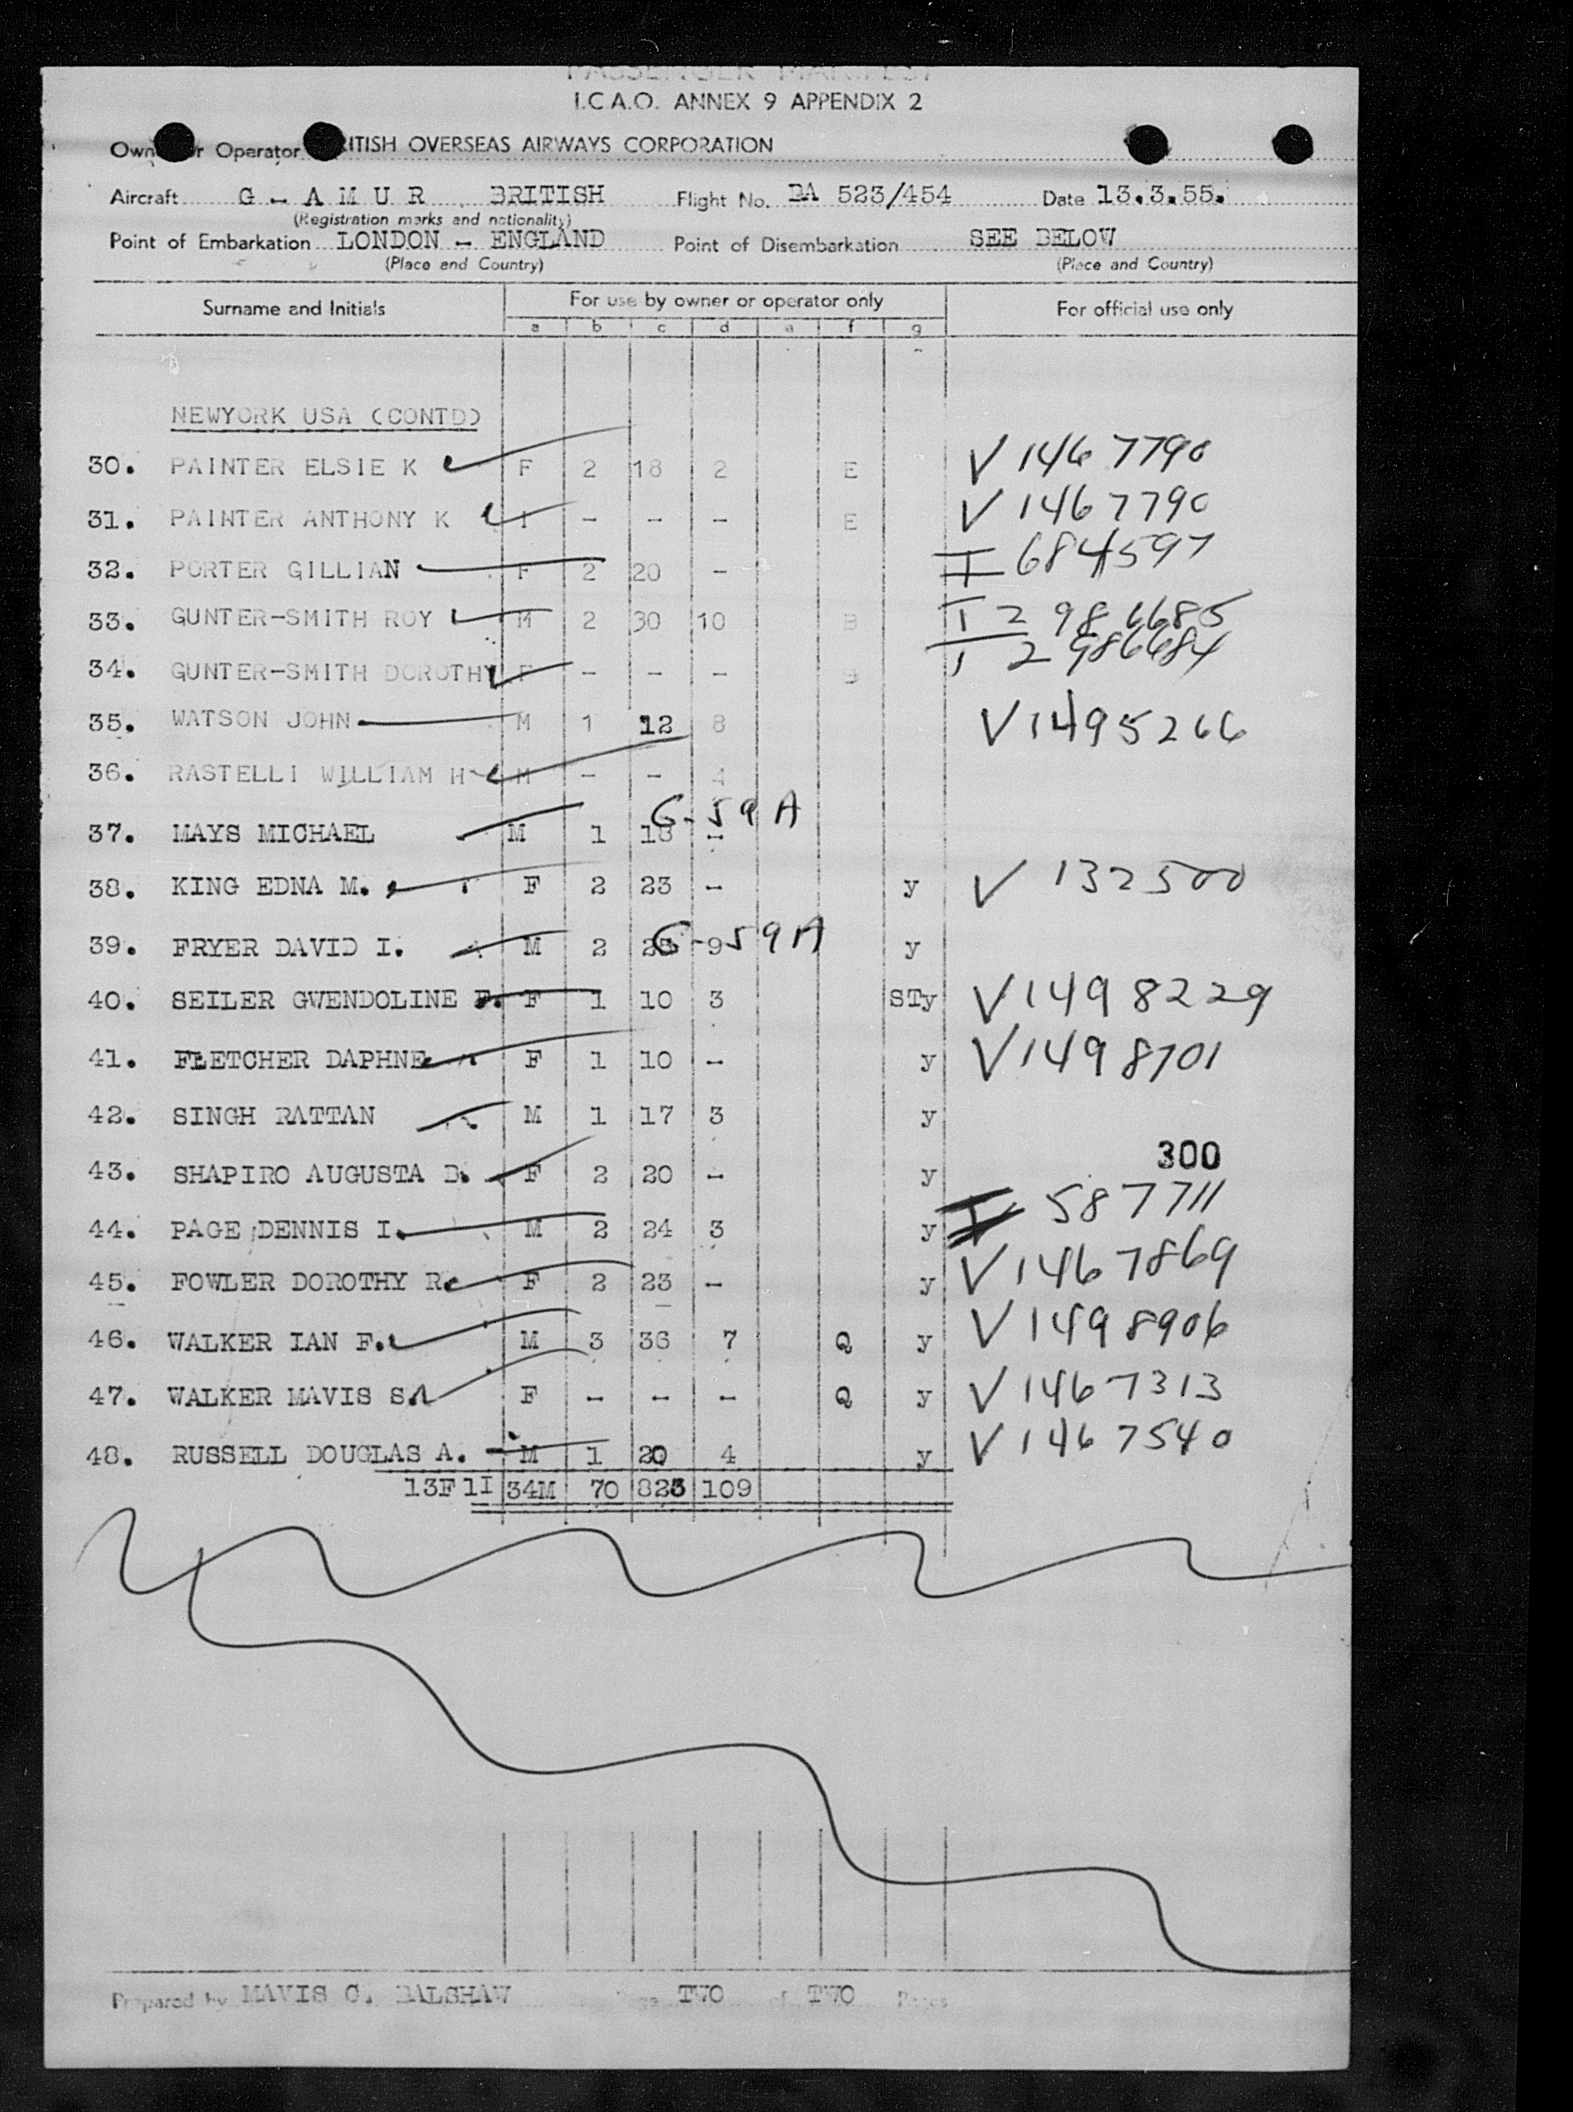 PASSENGER MANIFEST
I.C.A.O. ANNEX 9 APPENDIX 2
Own r Operator ITISH OVERSEAS AIRWAYS CORPORATION
Aircraft G - A M U R . BRITISH Flight No. BA 523/454 Date 13.3.55.
(Registration marks and nationality)
Point of Embarkation LONDON - ENGLAND Point of Disembarkation SEE BELOW
(Place and Country) (Place and Country)
Surname and Initials For use by owner or operator only For official use only
a b c d e f g
NEWYORK USA (CONTD)
30. PAINTER ELSIE K F 2 18 2 E V 1467790
31. PAINTER ANTHONY K I - - - E V 1467790
32. PORTER GILLIAN F 2 20 - I 684597
33. GUNTER-SMITH ROY M 2 30 10 B I 2986685
34. GUNTER-SMITH DOROTHY F - - - B I 2986684
35. WATSON JOHN M 1 12 8 V1495266
36. RASTELLI WILLIAM H M - - 4
37. MAYS MICHAEL M 1 18 - G-59A
38. KING EDNA M. F 2 23 - y V 132500
39. FRYER DAVID I. M 2 25 9 G-59A y
40. SEILER GWENDOLINE F. F 1 10 3 STy V1498229
41. FLETCHER DAPHNE F 1 10 - y V1498701
42. SINGH RATTAN M 1 17 3 y
300
43. SHAPIRO AUGUSTA B. F 2 20 - y I 587711
44. PAGE DENNIS I. M 2 24 3 y V1467869
45. FOWLER DOROTHY R. F 2 23 - y V1498906
46. WALKER IAN F. M 3 36 7 Q y V1467313
47. WALKER MAVIS S. F - - - Q y V1467540
48. RUSSELL DOUGLAS A. M 1 20 4 y
13F 1I 34M 70 823 109
Prepared by MAVIS C. BALSHAW TWO of TWO Pages